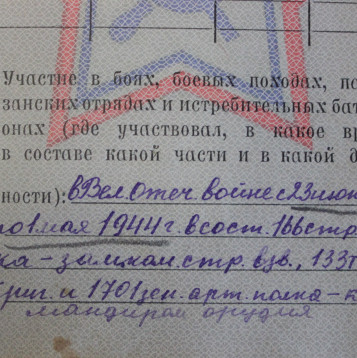 Участие в боях, боевых походах, па
занских отрядах и истребительных бат
онах (где участвовал, в какое вр
в составе какой части и в какой д
ности): в Вел. Отеч. войне с 23 июн
по 1 мая 1944 г. в сост. 166 стр.
ка - зам. ком. стр. взв., 133 т
бриг. и 1701 зен. арт. полка - к
мандиром орудия